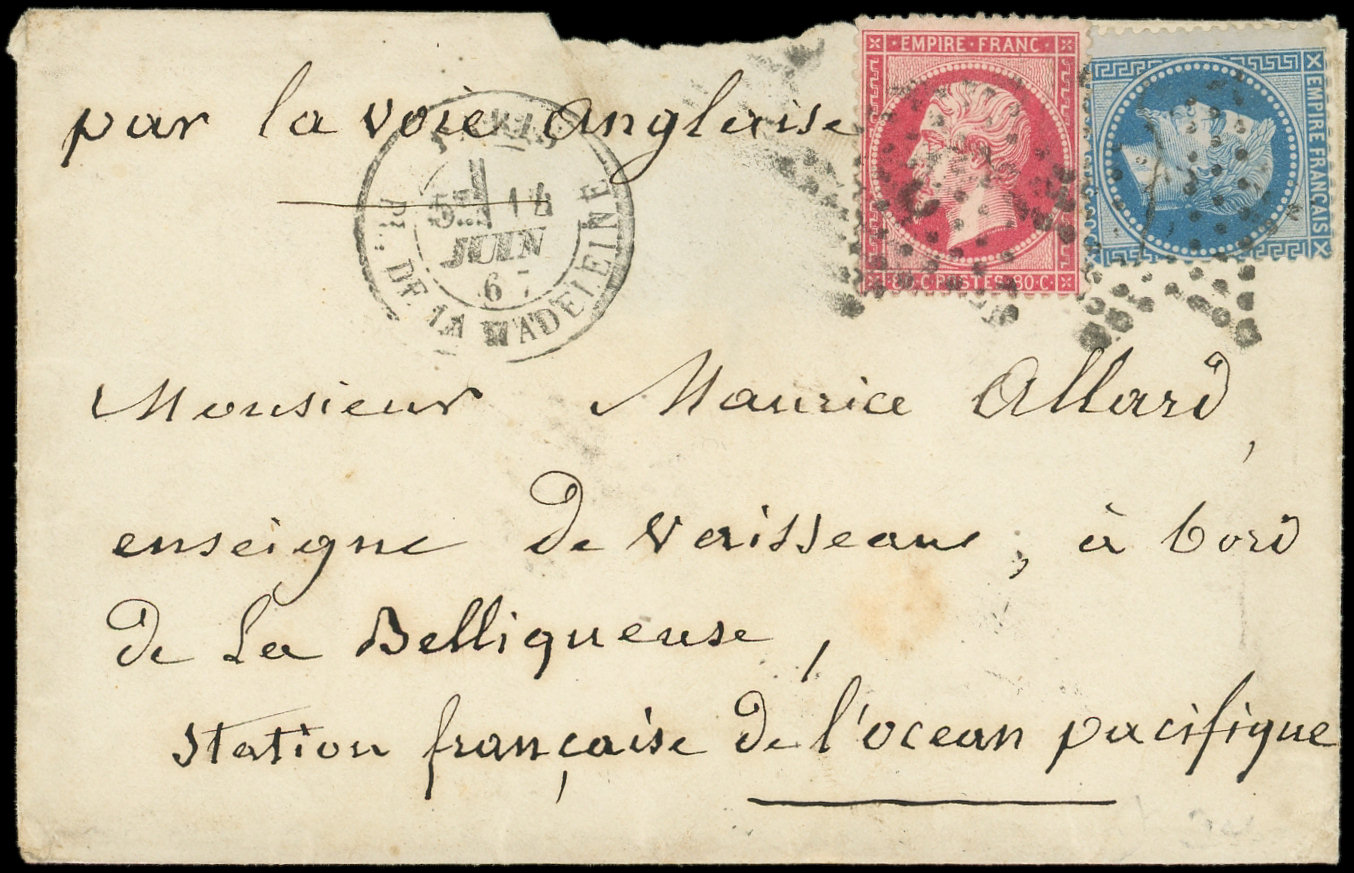 par la voie anglaise
PARIS
5E 14
JUIN
67
PL. DE LA MADELEINE
EMPIRE FRANC
80·C POSTES 80·C
EMPIRE FRANÇAIS
Monsieur Maurice Allard,
enseigne de vaisseau, à bord
de La Belliqueuse,
Station française de l'ocean pacifique